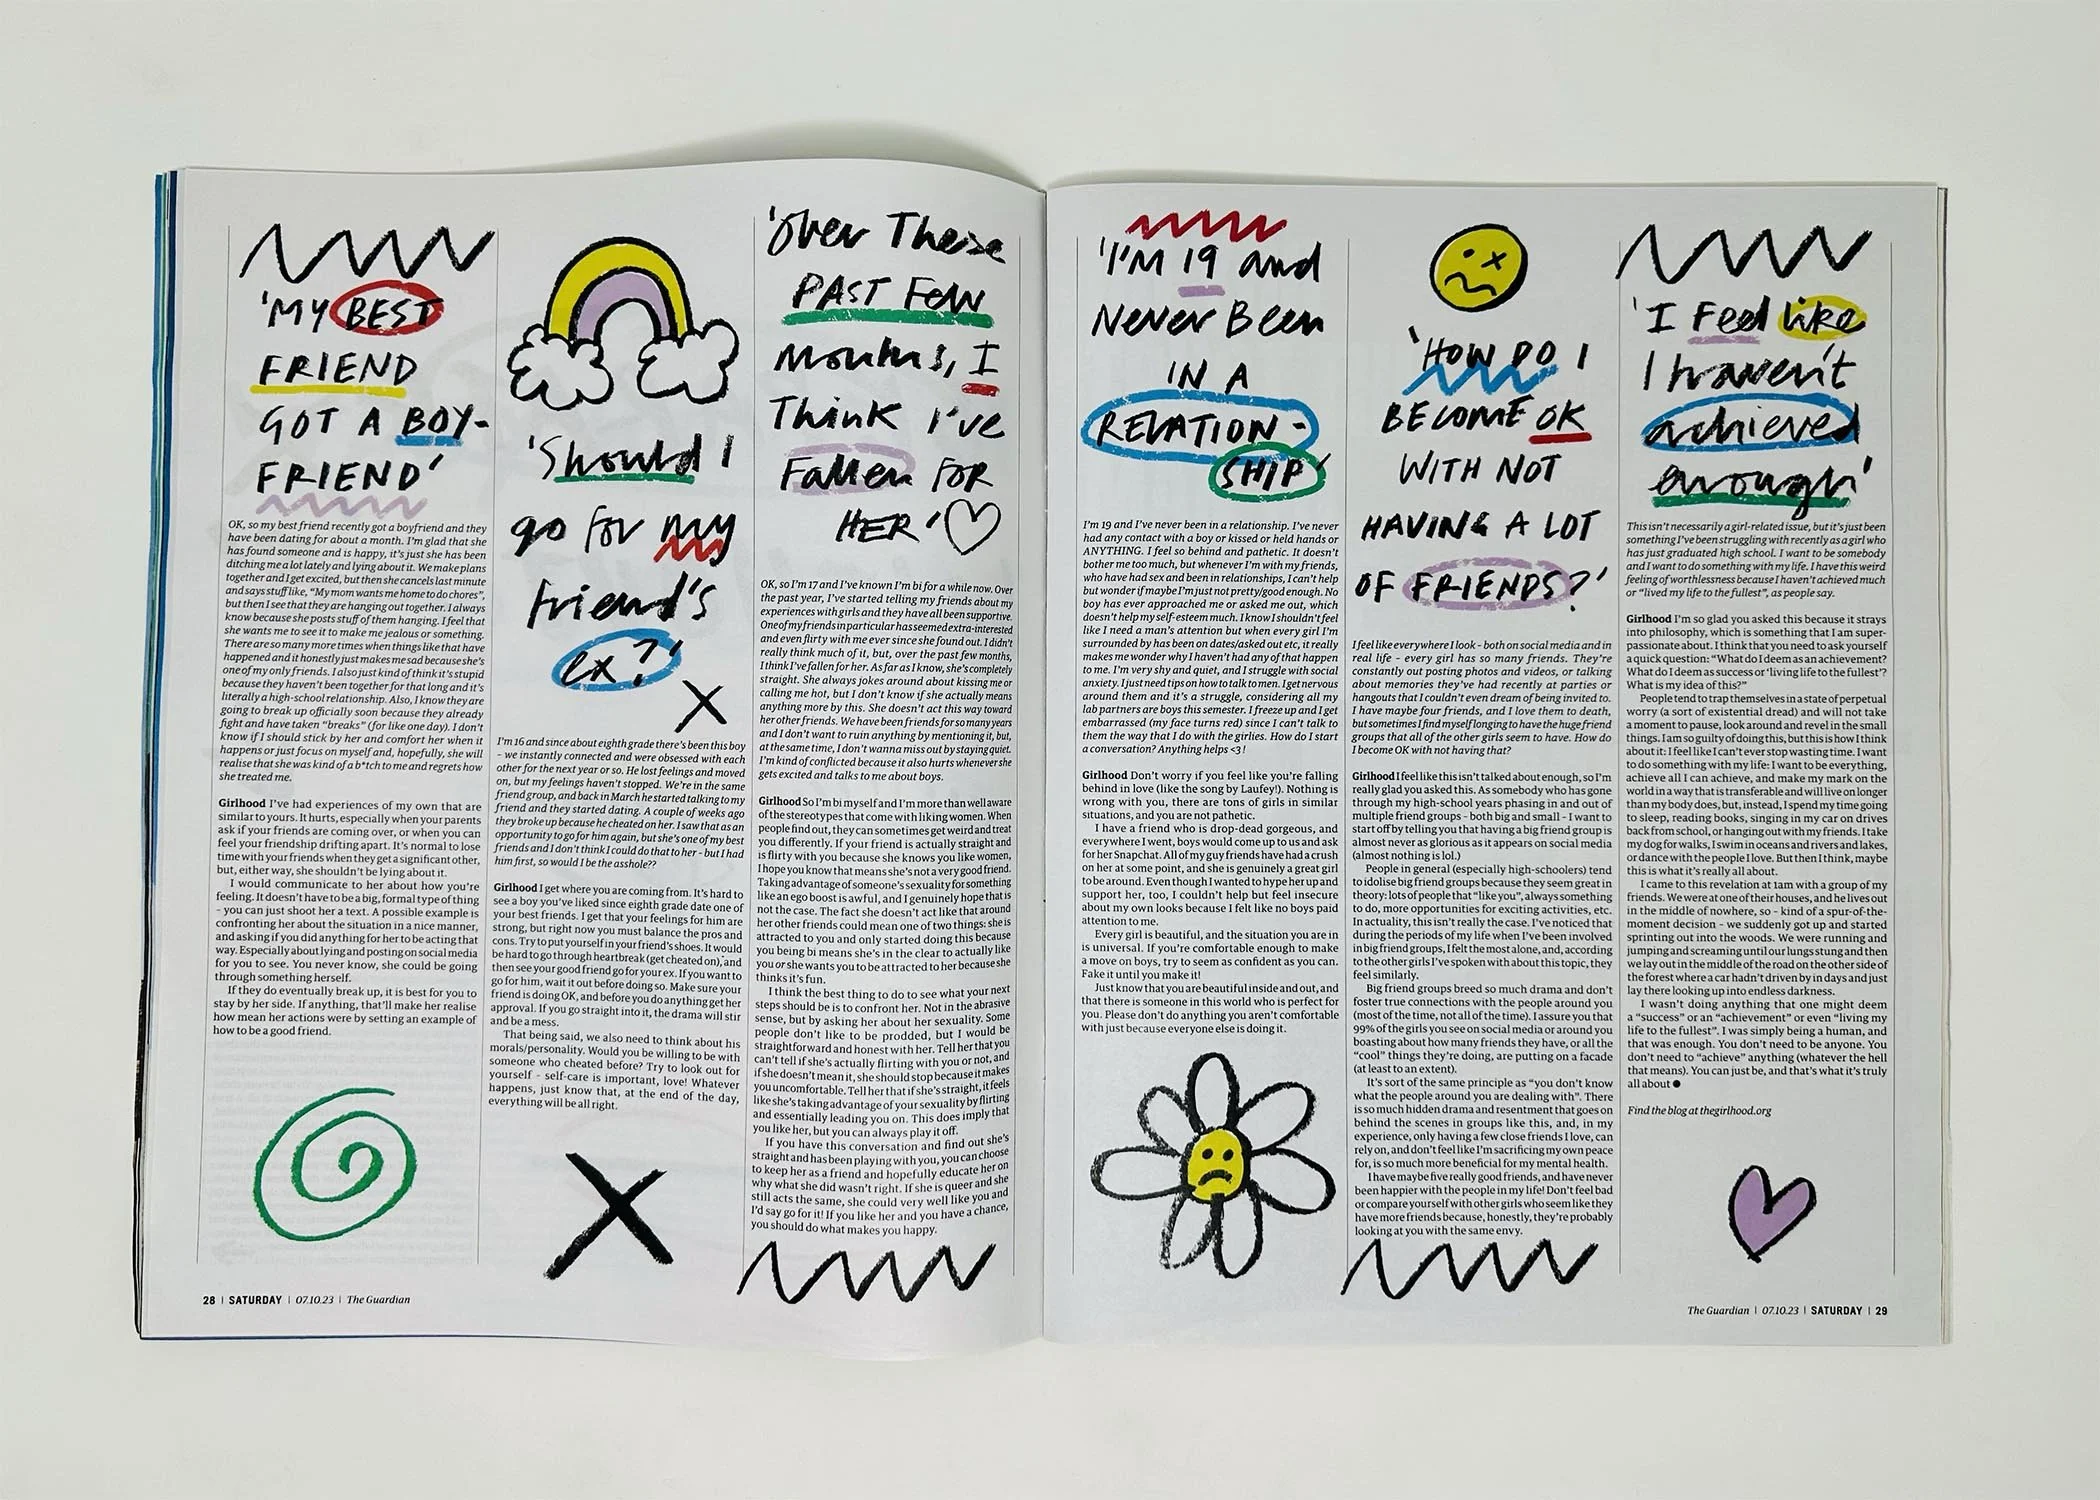 'MY BEST
FRIEND
GOT A BOY-
FRIEND'
OK, so my best friend recently got a boyfriend and they
have been dating for about a month. I'm glad that she
has found someone and is happy, it's just she has been
ditching me a lot lately and lying about it. We make plans
together and I get excited, but then she cancels last minute
and says stuff like, "My mom wants me home to do chores",
but then I see that they are hanging out together. I always
know because she posts stuff of them hanging. I feel that
she wants me to see it to make me jealous or something.
There are so many more times when things like that have
happened and it honestly just makes me sad because she's
one of my only friends. I also just kind of think it's stupid
because they haven't been together for that long and it's
literally a high-school relationship. Also, I know they are
going to break up officially soon because they already
fight and have taken "breaks" (for like one day). I don't
know if I should stick by her and comfort her when it
happens or just focus on myself and, hopefully, she will
realise that she was kind of a b*tch to me and regrets how
she treated me.
Girlhood I've had experiences of my own that are
similar to yours. It hurts, especially when your parents
ask if your friends are coming over, or when you can
feel your friendship drifting apart. It's normal to lose
time with your friends when they get a significant other,
but, either way, she shouldn't be lying about it.
I would communicate to her about how you're
feeling. It doesn't have to be a big, formal type of thing
- you can just shoot her a text. A possible example is
confronting her about the situation in a nice manner,
and asking if you did anything for her to be acting that
way. Especially about lying and posting on social media
for you to see. You never know, she could be going
through something herself.
If they do eventually break up, it is best for you to
stay by her side. If anything, that'll make her realise
how mean her actions were by setting an example of
how to be a good friend.
'Should I
go for my
friend's
ex?'
I'm 16 and since about eighth grade there's been this boy
- we instantly connected and were obsessed with each
other for the next year or so. He lost feelings and moved
on, but my feelings haven't stopped. We're in the same
friend group, and back in March he started talking to my
friend and they started dating. A couple of weeks ago
they broke up because he cheated on her. I saw that as an
opportunity to go for him again, but she's one of my best
friends and I don't think I could do that to her - but I had
him first, so would I be the asshole??
Girlhood I get where you are coming from. It's hard to
see a boy you've liked since eighth grade date one of
your best friends. I get that your feelings for him are
strong, but right now you must balance the pros and
cons. Try to put yourself in your friend's shoes. It would
be hard to go through heartbreak (get cheated on), and
then see your good friend go for your ex. If you want to
go for him, wait it out before doing so. Make sure your
friend is doing OK, and before you do anything get her
approval. If you go straight into it, the drama will stir
and be a mess.
That being said, we also need to think about his
morals/personality. Would you be willing to be with
someone who cheated before? Try to look out for
yourself - self-care is important, love! Whatever
happens, just know that, at the end of the day,
everything will be all right.
'Over These
PAST FEW
Months, I
Think I've
Fallen FOR
HER'
OK, so I'm 17 and I've known I'm bi for a while now. Over
the past year, I've started telling my friends about my
experiences with girls and they have all been supportive.
One of my friends in particular has seemed extra-interested
and even flirty with me ever since she found out. I didn't
really think much of it, but, over the past few months,
I think I've fallen for her. As far as I know, she's completely
straight. She always jokes around about kissing me or
calling me hot, but I don't know if she actually means
anything more by this. She doesn't act this way toward
her other friends. We have been friends for so many years
and I don't want to ruin anything by mentioning it, but,
at the same time, I don't wanna miss out by staying quiet.
I'm kind of conflicted because it also hurts whenever she
gets excited and talks to me about boys.
Girlhood So I'm bi myself and I'm more than well aware
of the stereotypes that come with liking women. When
people find out, they can sometimes get weird and treat
you differently. If your friend is actually straight and
is flirty with you because she knows you like women,
I hope you know that means she's not a very good friend.
Taking advantage of someone's sexuality for something
like an ego boost is awful, and I genuinely hope that is
not the case. The fact she doesn't act like that around
her other friends could mean one of two things: she is
attracted to you and only started doing this because
you being bi means she's in the clear to actually like
you or she wants you to be attracted to her because she
thinks it's fun.
I think the best thing to do to see what your next
steps should be is to confront her. Not in the abrasive
sense, but by asking her about her sexuality. Some
people don't like to be prodded, but I would be
straightforward and honest with her. Tell her that you
can't tell if she's actually flirting with you or not, and
if she doesn't mean it, she should stop because it makes
you uncomfortable. Tell her that if she's straight, it feels
like she's taking advantage of your sexuality by flirting
and essentially leading you on. This does imply that
you like her, but you can always play it off.
If you have this conversation and find out she's
straight and has been playing with you, you can choose
to keep her as a friend and hopefully educate her on
why what she did wasn't right. If she is queer and she
still acts the same, she could very well like you and
I'd say go for it! If you like her and you have a chance,
you should do what makes you happy.
28 | SATURDAY | 07.10.23 | The Guardian
'I'M 19 and
Never Been
IN A
RELATION-
SHIP'
I'm 19 and I've never been in a relationship. I've never
had any contact with a boy or kissed or held hands or
ANYTHING. I feel so behind and pathetic. It doesn't
bother me too much, but whenever I'm with my friends,
who have had sex and been in relationships, I can't help
but wonder if maybe I'm just not pretty/good enough. No
boy has ever approached me or asked me out, which
doesn't help my self-esteem much. I know I shouldn't feel
like I need a man's attention but when every girl I'm
surrounded by has been on dates/asked out etc, it really
makes me wonder why I haven't had any of that happen
to me. I'm very shy and quiet, and I struggle with social
anxiety. I just need tips on how to talk to men. I get nervous
around them and it's a struggle, considering all my
lab partners are boys this semester. I freeze up and I get
embarrassed (my face turns red) since I can't talk to
them the way that I do with the girlies. How do I start
a conversation? Anything helps <3!
Girlhood Don't worry if you feel like you're falling
behind in love (like the song by Laufey!). Nothing is
wrong with you, there are tons of girls in similar
situations, and you are not pathetic.
I have a friend who is drop-dead gorgeous, and
everywhere I went, boys would come up to us and ask
for her Snapchat. All of my guy friends have had a crush
on her at some point, and she is genuinely a great girl
to be around. Even though I wanted to hype her up and
support her, too, I couldn't help but feel insecure
about my own looks because I felt like no boys paid
attention to me.
Every girl is beautiful, and the situation you are in
is universal. If you're comfortable enough to make
a move on boys, try to seem as confident as you can.
Fake it until you make it!
Just know that you are beautiful inside and out, and
that there is someone in this world who is perfect for
you. Please don't do anything you aren't comfortable
with just because everyone else is doing it.
'HOW DO I
BECOME OK
WITH NOT
HAVING A LOT
OF FRIENDS?'
I feel like everywhere I look - both on social media and in
real life - every girl has so many friends. They're
constantly out posting photos and videos, or talking
about memories they've had recently at parties or
hangouts that I couldn't even dream of being invited to.
I have maybe four friends, and I love them to death,
but sometimes I find myself longing to have the huge friend
groups that all of the other girls seem to have. How do
I become OK with not having that?
Girlhood I feel like this isn't talked about enough, so I'm
really glad you asked this. As somebody who has gone
through my high-school years phasing in and out of
multiple friend groups - both big and small - I want to
start off by telling you that having a big friend group is
almost never as glorious as it appears on social media
(almost nothing is lol.)
People in general (especially high-schoolers) tend
to idolise big friend groups because they seem great in
theory: lots of people that "like you", always something
to do, more opportunities for exciting activities, etc.
In actuality, this isn't really the case. I've noticed that
during the periods of my life when I've been involved
in big friend groups, I felt the most alone, and, according
to the other girls I've spoken with about this topic, they
feel similarly.
Big friend groups breed so much drama and don't
foster true connections with the people around you
(most of the time, not all of the time). I assure you that
99% of the girls you see on social media or around you
boasting about how many friends they have, or all the
"cool" things they're doing, are putting on a facade
(at least to an extent).
It's sort of the same principle as "you don't know
what the people around you are dealing with". There
is so much hidden drama and resentment that goes on
behind the scenes in groups like this, and, in my
experience, only having a few close friends I love, can
rely on, and don't feel like I'm sacrificing my own peace
for, is so much more beneficial for my mental health.
I have maybe five really good friends, and have never
been happier with the people in my life! Don't feel bad
or compare yourself with other girls who seem like they
have more friends because, honestly, they're probably
looking at you with the same envy.
'I Feel like
I haven't
achieved
enough'
This isn't necessarily a girl-related issue, but it's just been
something I've been struggling with recently as a girl who
has just graduated high school. I want to be somebody
and I want to do something with my life. I have this weird
feeling of worthlessness because I haven't achieved much
or "lived my life to the fullest", as people say.
Girlhood I'm so glad you asked this because it strays
into philosophy, which is something that I am super-
passionate about. I think that you need to ask yourself
a quick question: "What do I deem as an achievement?
What do I deem as success or 'living life to the fullest'?
What is my idea of this?"
People tend to trap themselves in a state of perpetual
worry (a sort of existential dread) and will not take
a moment to pause, look around and revel in the small
things. I am so guilty of doing this, but this is how I think
about it: I feel like I can't ever stop wasting time. I want
to do something with my life: I want to be everything,
achieve all I can achieve, and make my mark on the
world in a way that is transferable and will live on longer
than my body does, but, instead, I spend my time going
to sleep, reading books, singing in my car on drives
back from school, or hanging out with my friends. I take
my dog for walks, I swim in oceans and rivers and lakes,
or dance with the people I love. But then I think, maybe
this is what it's really all about.
I came to this revelation at 1am with a group of my
friends. We were at one of their houses, and he lives out
in the middle of nowhere, so - kind of a spur-of-the-
moment decision - we suddenly got up and started
sprinting out into the woods. We were running and
jumping and screaming until our lungs stung and then
we lay out in the middle of the road on the other side of
the forest where a car hadn't driven by in days and just
lay there looking up into endless darkness.
I wasn't doing anything that one might deem
a "success" or an "achievement" or even "living my
life to the fullest". I was simply being a human, and
that was enough. You don't need to be anyone. You
don't need to "achieve" anything (whatever the hell
that means). You can just be, and that's what it's truly
all about ●
Find the blog at thegirlhood.org
The Guardian | 07.10.23 | SATURDAY | 29